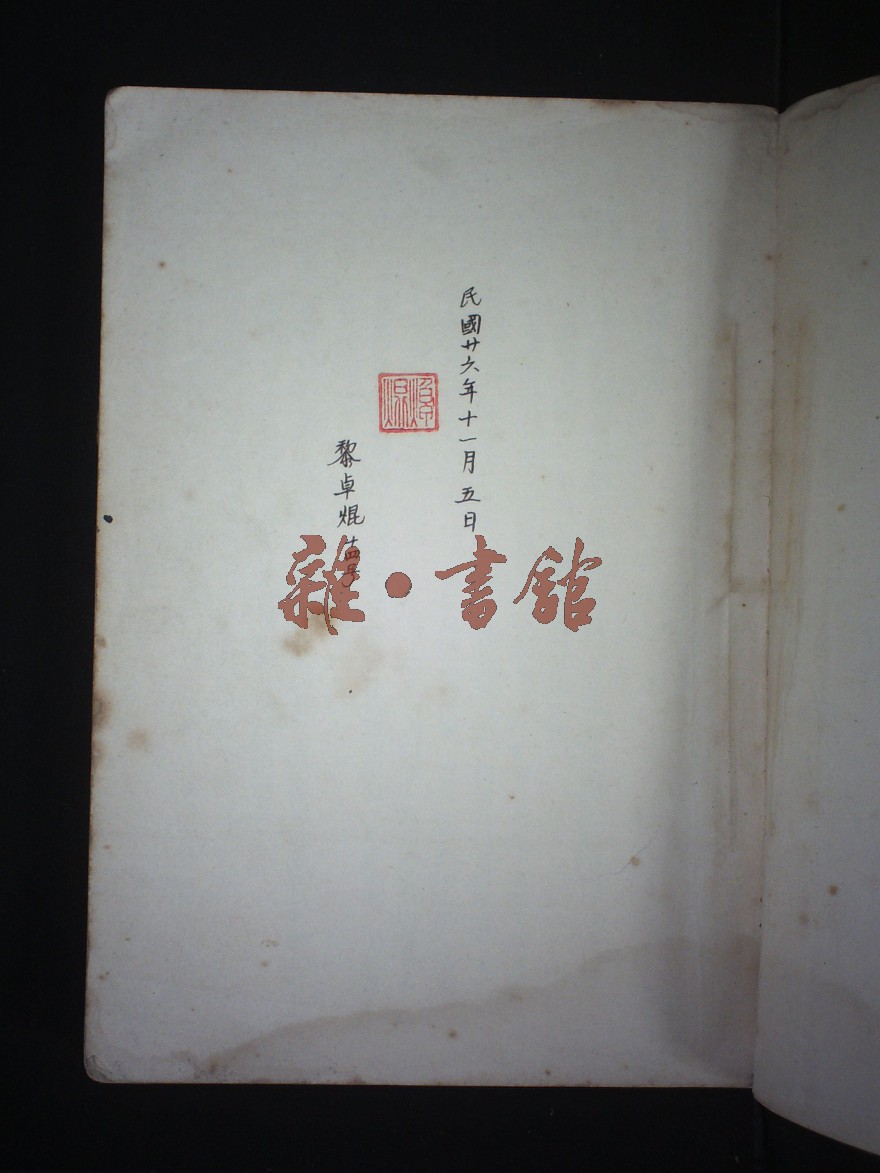 民國廿六年十一月五日
黎卓焜
雜•書館